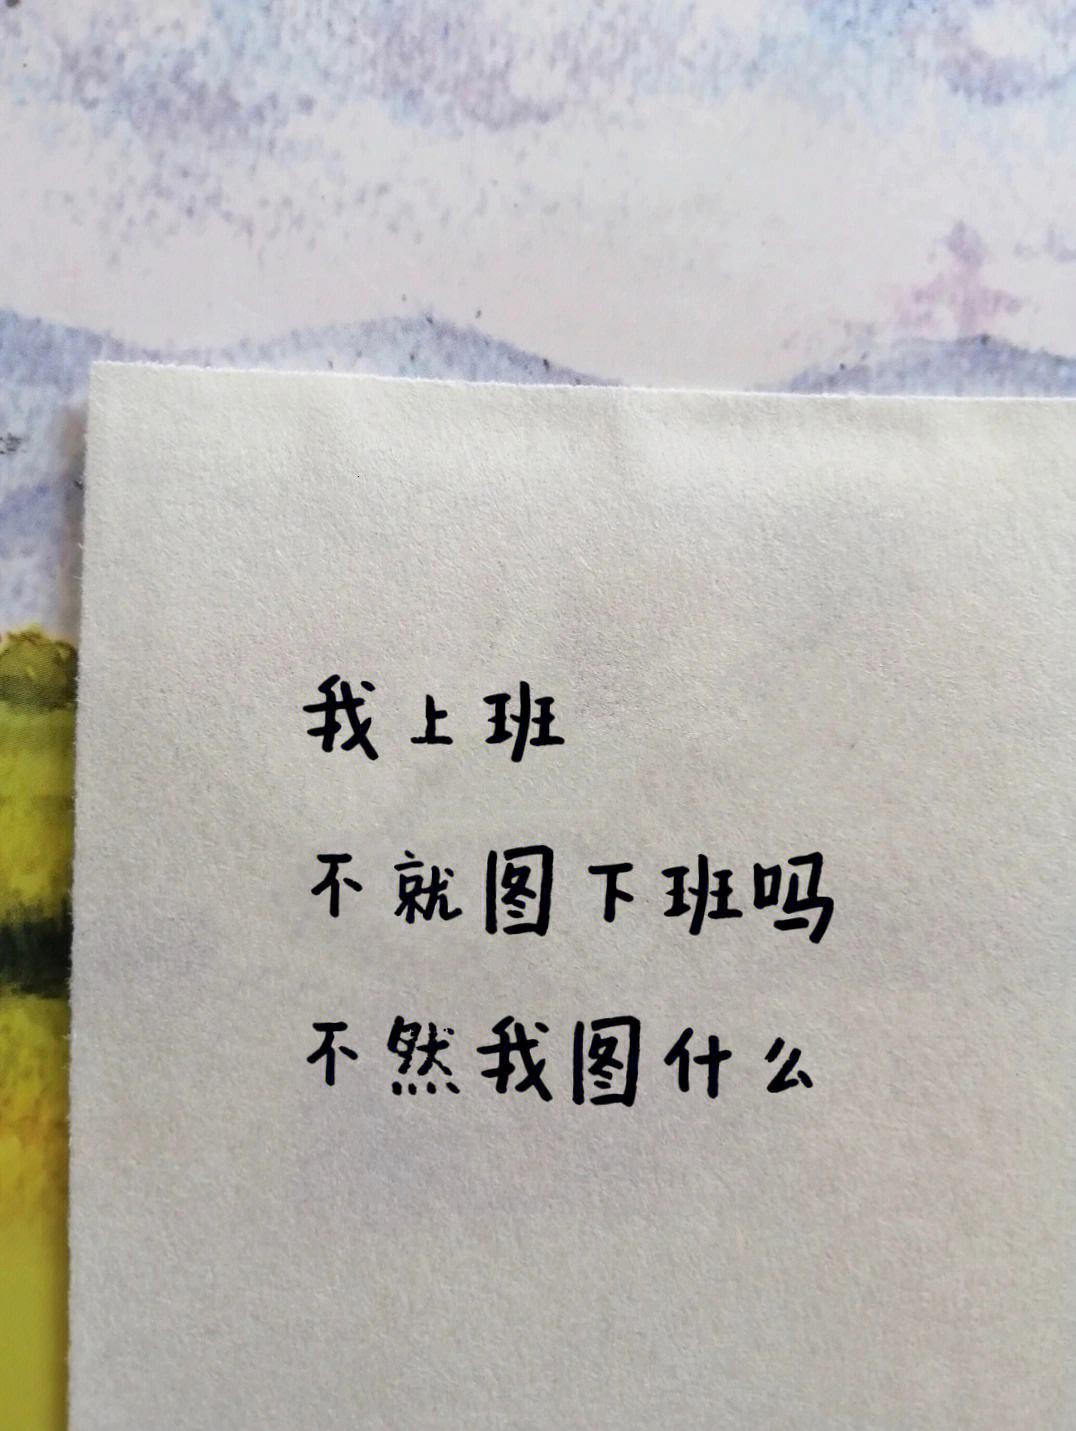 我上班
不就图下班吗
不然我图什么